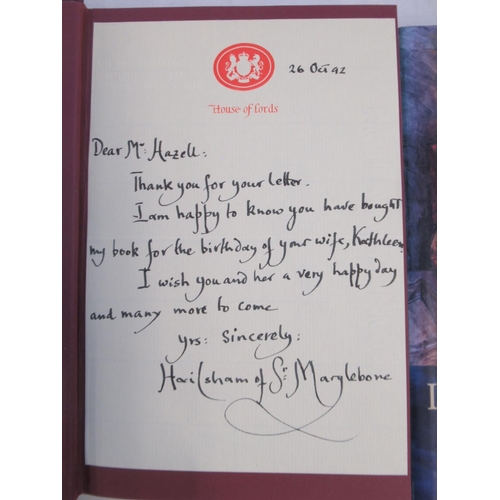 26 Oct 92
House of Lords
Dear Mr: Hazell:
Thank you for your letter.
I am happy to know you have bought
my book for the birthday of your wife, Kathleen.
I wish you and her a very happy day
and many more to come
yrs: Sincerely:
Hailsham of St: Marylebone